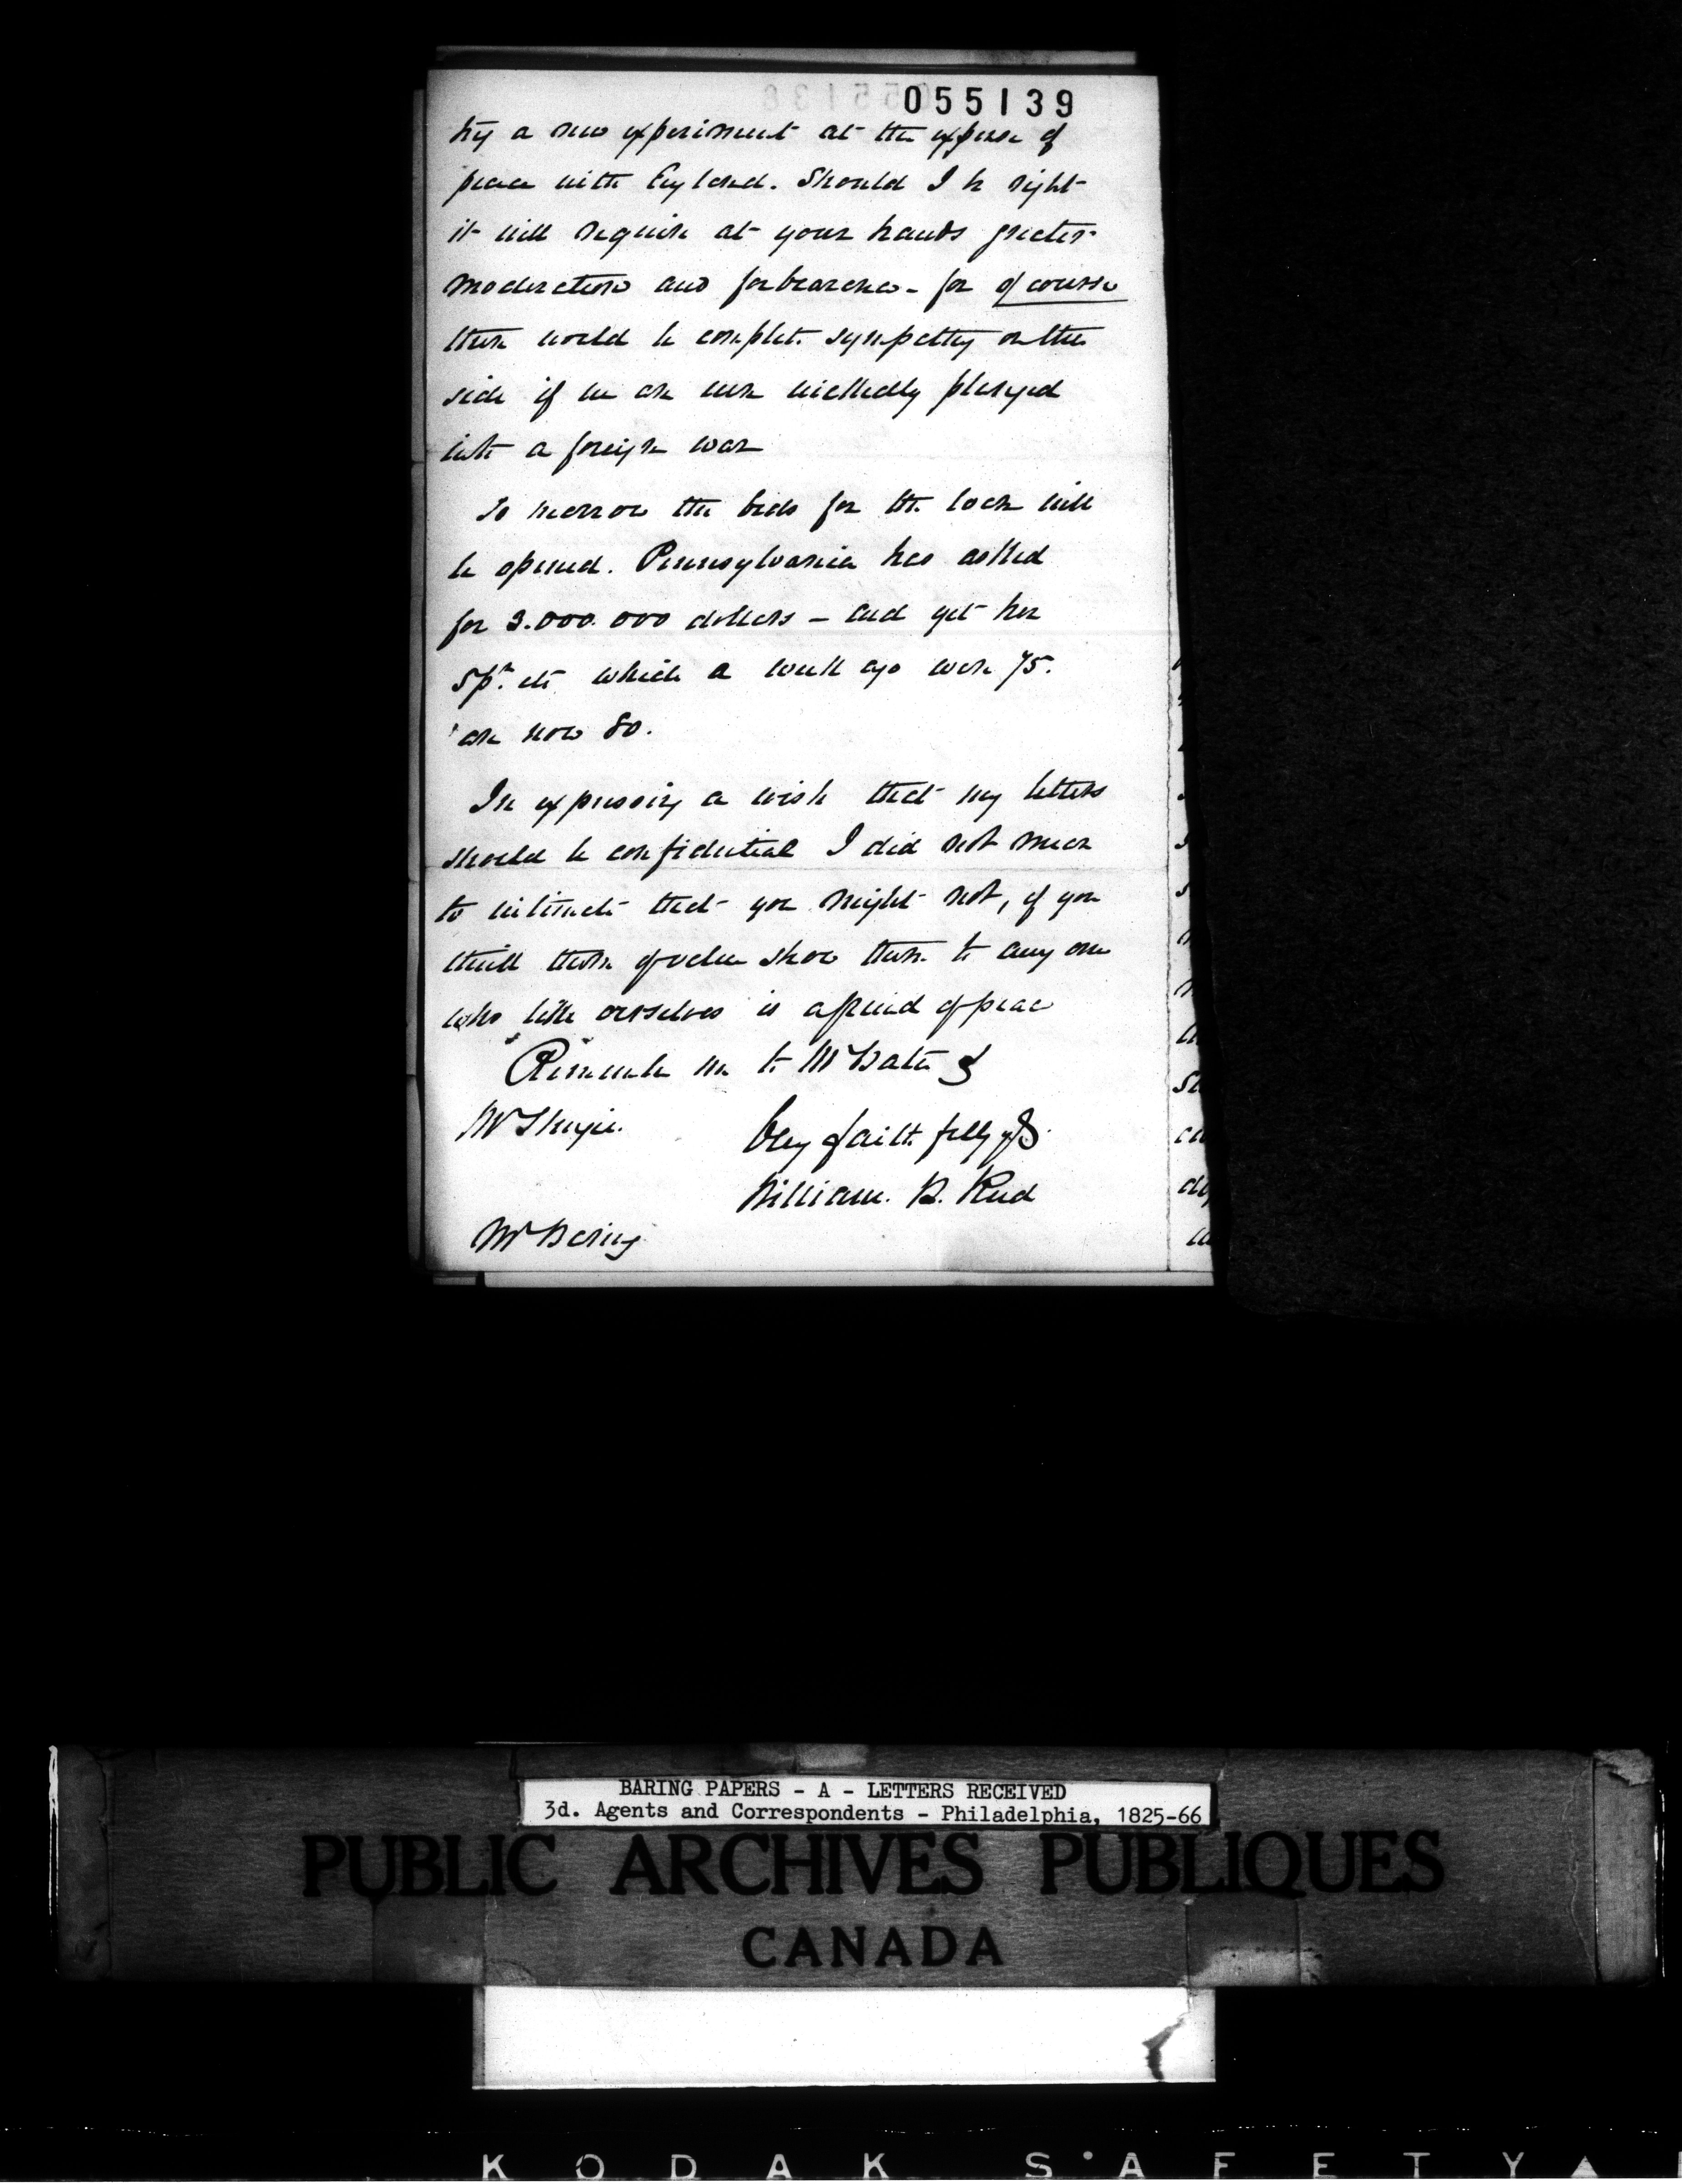 055139
try a new experiment at the expense of
peace with England. Should I be right
it will require at your hands greater
moderation and forbearance - for of course
there would be complete sympathy on this
side if we are ever wickedly plunged
into a foreign war
To morrow the bids for the loan will
be opened. Pennsylvania has asked
for 3.000.000 dollars - and yet her
5 pr. cts which a week ago were 75.
are now 80.
In expressing a wish that my letters
should be confidential I did not mean
to intimate that you might not, if you
think them of value show them to any one
who like ourselves is a friend of peace
Remember me to Mr Bates &
Mr
Very faithfully yrs
William. B. Reed
Mr Baring
BARING PAPERS - A - LETTERS RECEIVED
3d. Agents and Correspondents - Philadelphia, 1825-66
PUBLIC ARCHIVES PUBLIQUES
CANADA
KODAK SAFETY